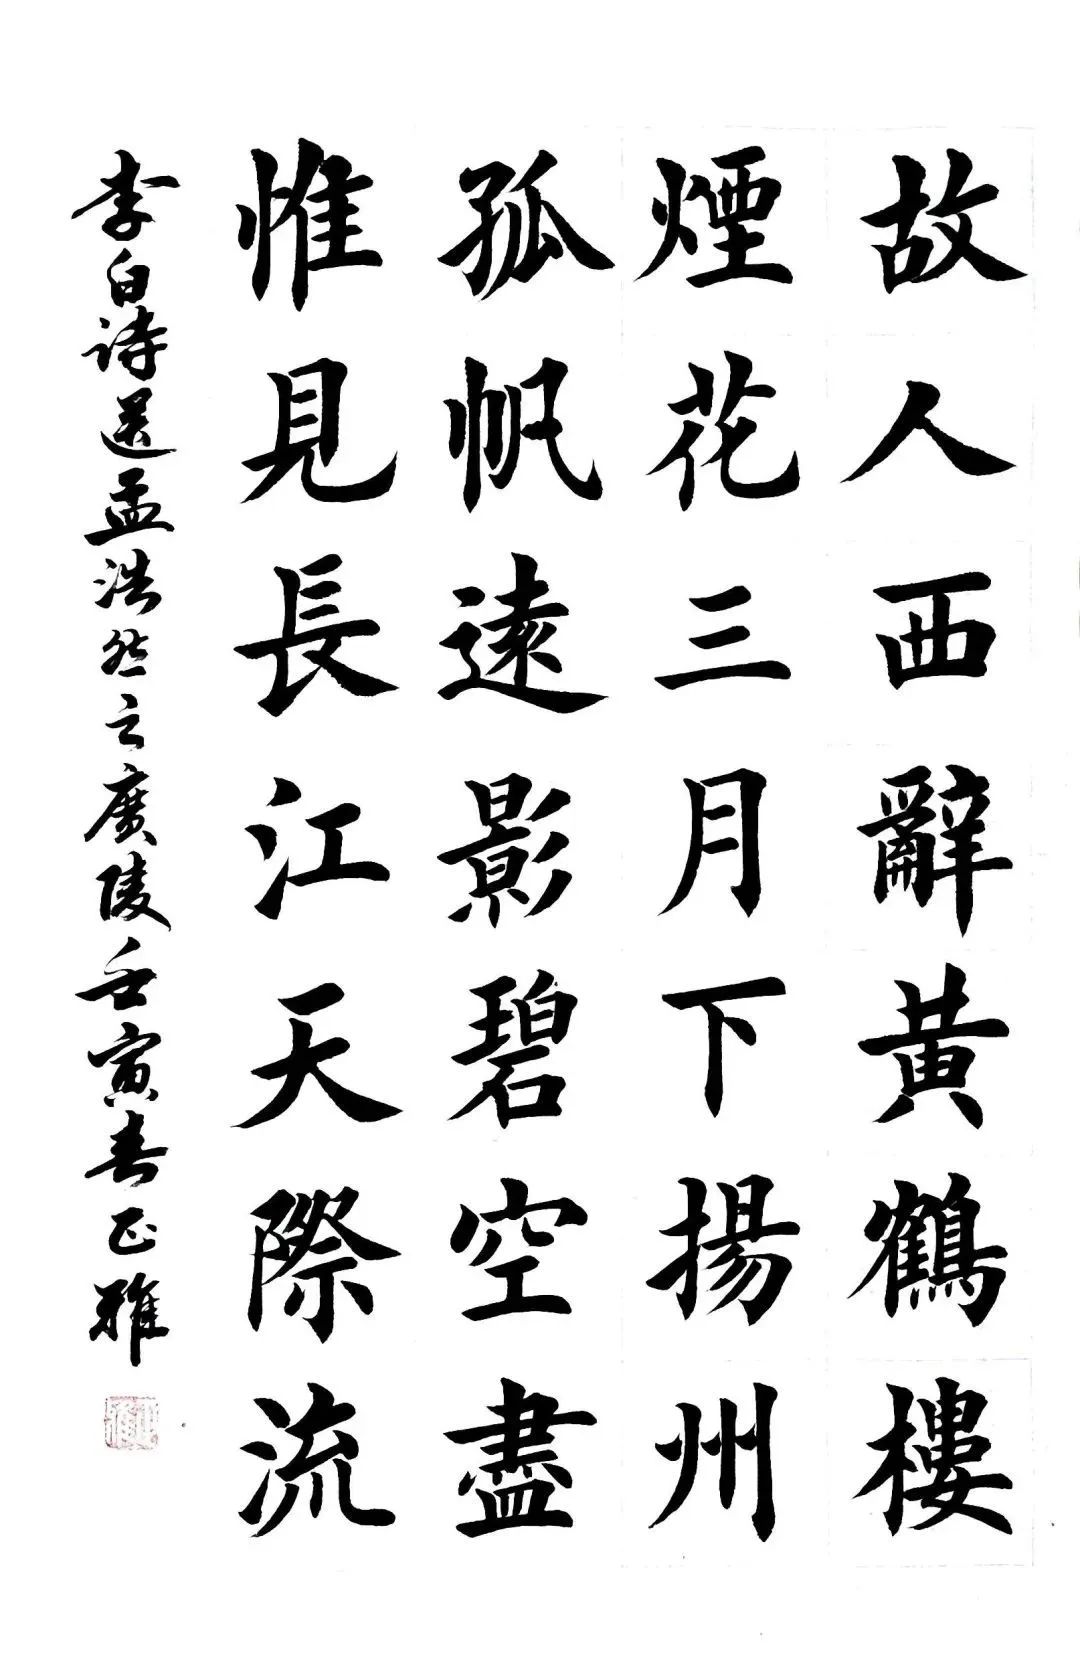 故人西辭黃鶴樓
煙花三月下揚州
孤帆遠影碧空盡
惟見長江天際流
李白诗送孟浩然之廣陵壬寅春正雅